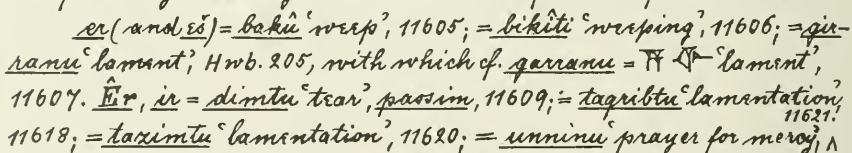 er (and eš) = bakû ‘weep’, 11605; = bikîti ‘weeping’, 11606; = gir-
ranu ‘lament’, Hwb. 205, with which cf. qarranu = ‘lament’,
11607. Êr, ir = dimtu ‘tear’, passim, 11609; = taqribtu ‘lamentation’,
11618; = tazimtu ‘lamentation’, 11620; = unninu ‘prayer for mercy’, 11621.